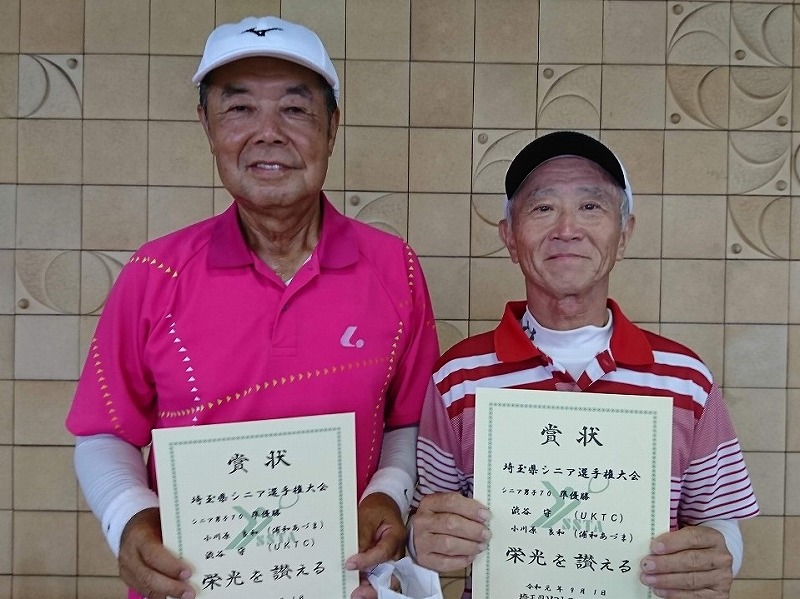 賞状
埼玉県シニア選手権大会
シニア男子70 準優勝
小川原 良和 (浦和あづま)
渋谷 守 (UKTC)
栄光を讃える
賞状
埼玉県シニア選手権大会
シニア男子70 準優勝
渋谷 守 (UKTC)
小川原 良和 (浦和あづま)
栄光を讃える
令和元年9月1日